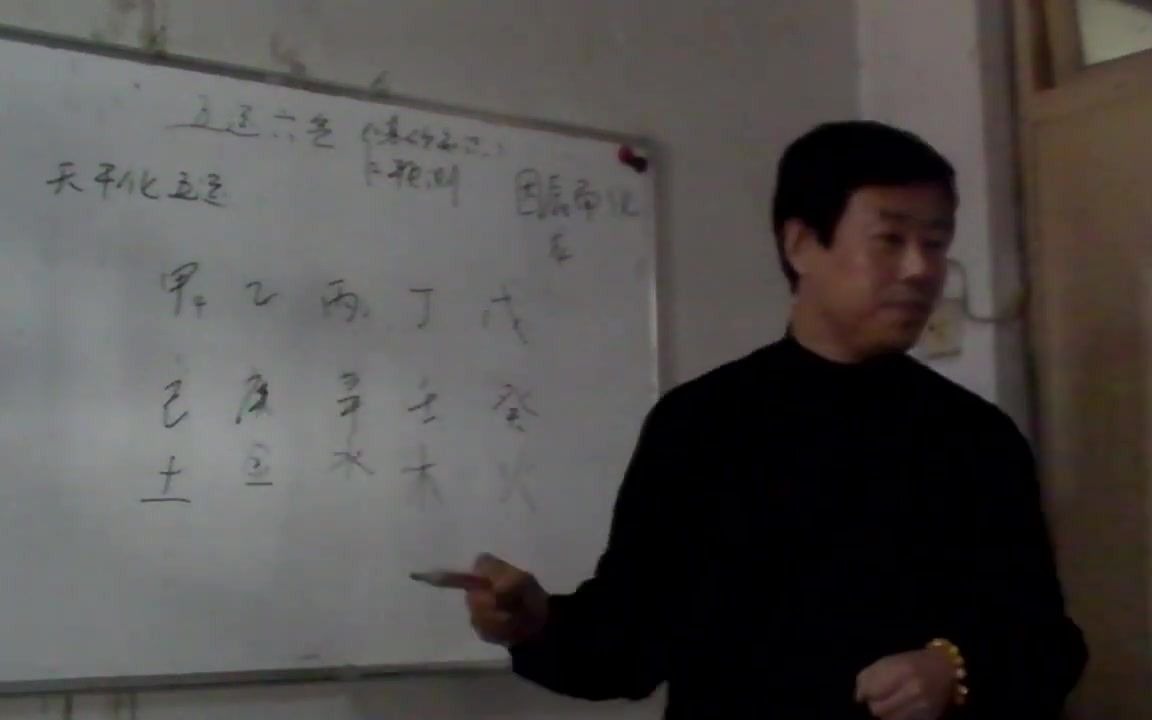 五运六气
预测
天干化五运
因感而化
甲 乙 丙 丁 戊
己 庚 辛 壬 癸
土 金 水 木 火